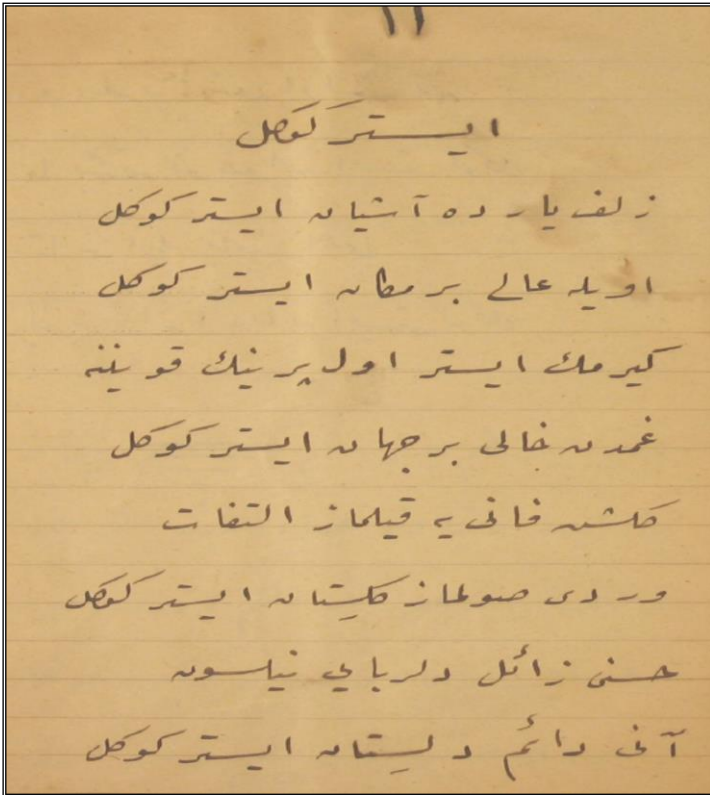 ١١
ایستر کوکل
زلف یارده آشیان ایستر کوکل
اویله عالی بر مکان ایستر کوکل
کیرمك ایستر اول پرینك قویننه
غمدن خالی بر جهان ایستر کوکل
کلشن فانی یه قیلماز التفات
وردی صولماز کلستان ایستر کوکل
حسنی زائل دلربایی نیلسون
آنی دائم دلستان ایستر کوکل